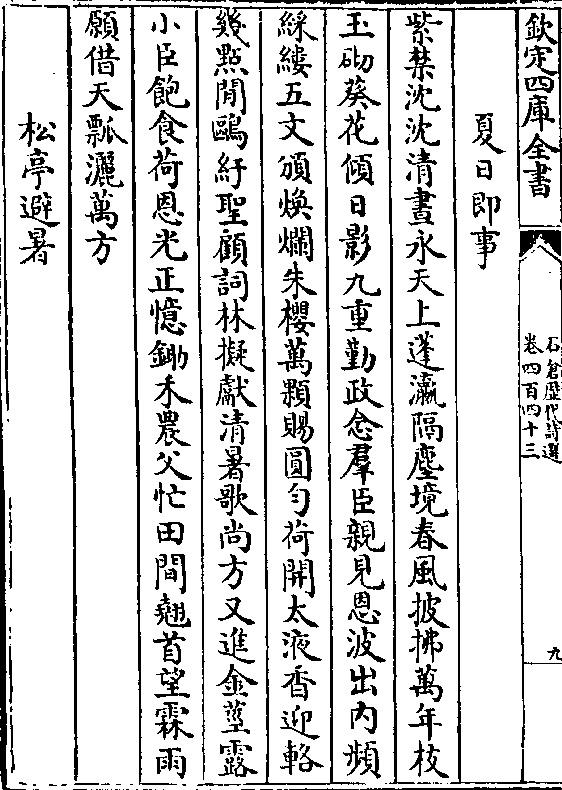 欽定四庫全書
石倉歷代詩選
卷四百四十三
九
夏日即事
紫禁沈沈清晝永天上蓬瀛隔塵境春風披拂萬年枝
玉砌葵花傾日影九重勤政念羣臣親見恩波出內頻
綵縷五文頒煥爛朱櫻萬顆賜圓勻荷開太液香迎輅
幾點閒鷗紆聖顧詞林擬獻清暑歌尚方又進金莖露
小臣飽食荷恩光正憶鋤禾農父忙田間翹首望霖雨
願借天瓢灑萬方
松亭避暑